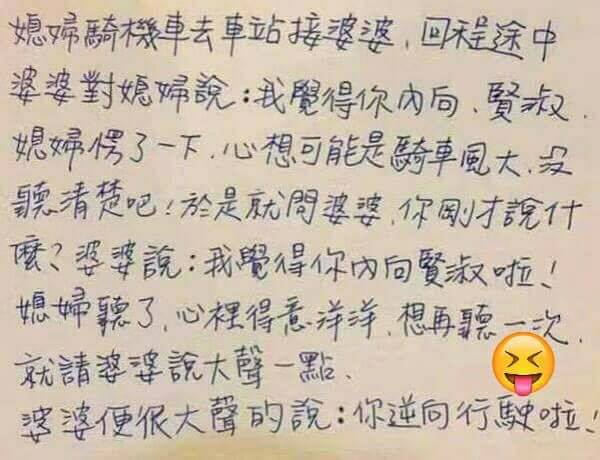 媳婦騎機車去車站接婆婆，回程途中
婆婆對媳婦說：我覺得你內向、賢淑．
媳婦愣了一下，心想可能是騎車風大，沒
聽清楚吧！於是就問婆婆，你剛才說什
麼？婆婆說：我覺得你內向賢淑啦！
媳婦聽了，心裡得意洋洋，想再聽一次，
就請婆婆說大聲一點．
婆婆便很大聲的說：你逆向行駛啦！